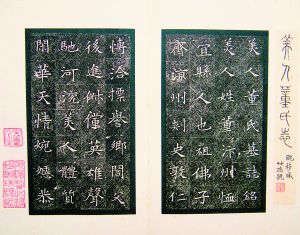 美人董氏志
美人董氏墓誌銘
美人姓董汴州恤
宜縣人也祖佛子
齊涼州刺史敦仁
博洽標譽鄉閭父
後進俶儻英雄聲
馳河兗美人體質
閑華天情婉嫕恭